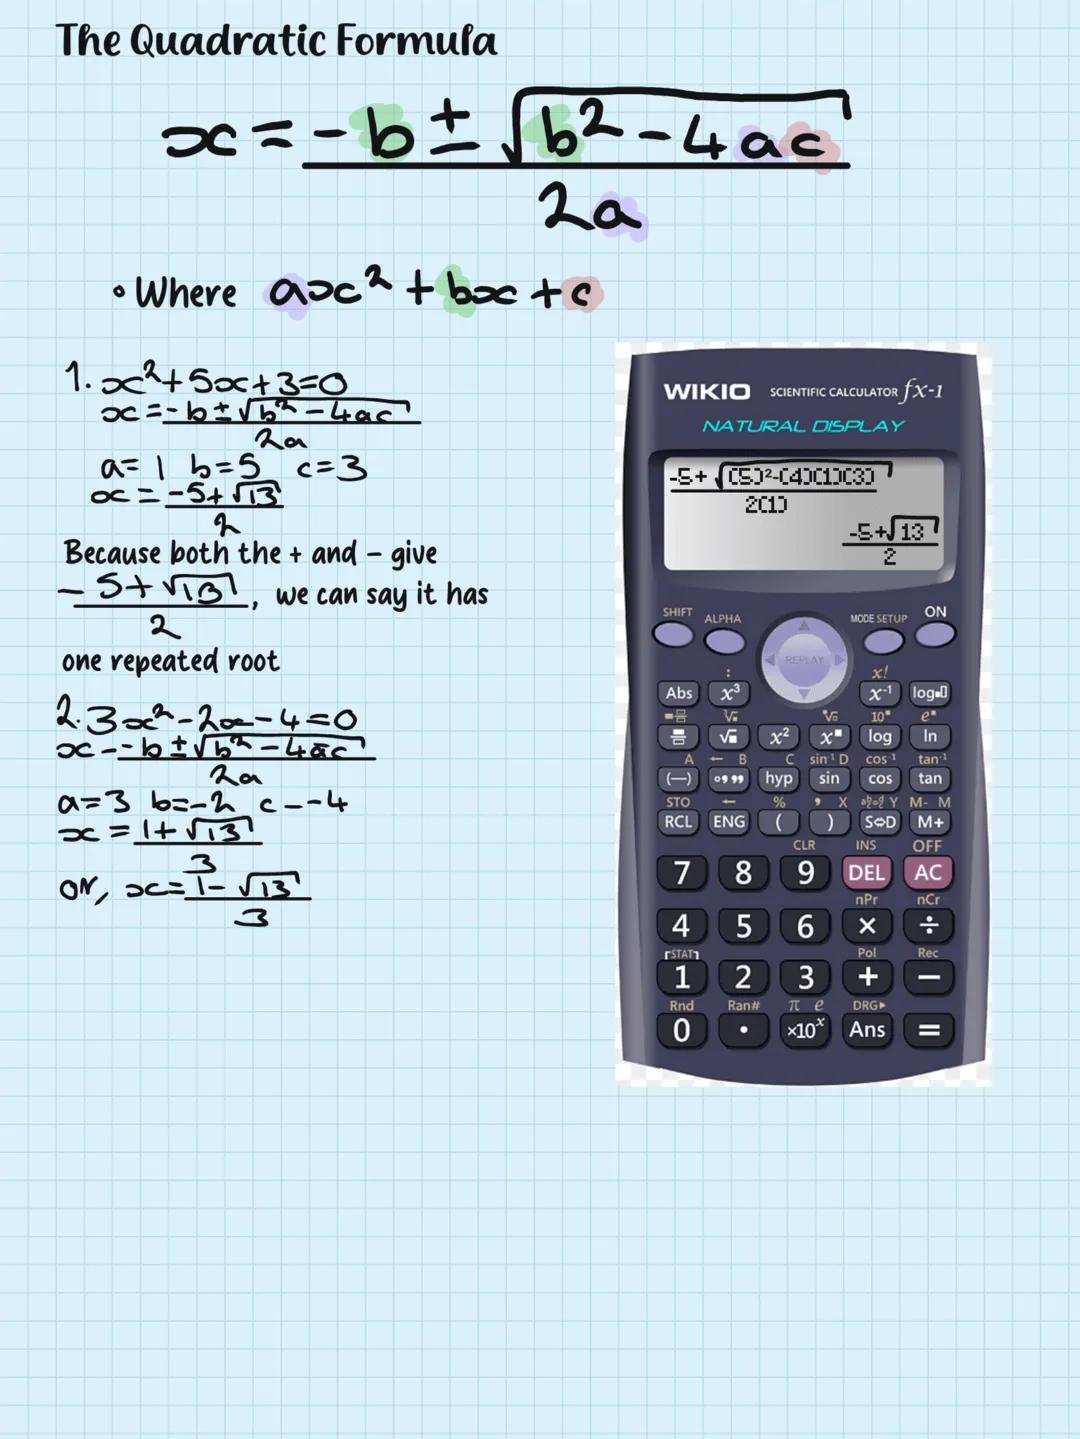 The Quadratic Formula
x = -b ± √b² - 4ac
2a
• Where ax² + bx + c
1. x² + 5x + 3 = 0
x = -b ± √b² - 4ac
2a
a = 1 b = 5 c = 3
x = -5 + √13
2
Because both the + and - give
-5 + √13, we can say it has
2
one repeated root
2. 3x² - 2x - 4 = 0
x - -b ± √b² - 4ac
2a
a = 3 b = -2 c - -4
x = 1 + √13
3
or, x = 1 - √13
3
WIKIO SCIENTIFIC CALCULATOR fx-1
NATURAL DISPLAY
-5+√(5)²-(4)(1)(3)
2(1)
-5+√13
2
SHIFT ALPHA MODE SETUP ON
REPLAY
: x!
Abs x³ x⁻¹ log
10 e
√ x² x log ln
A ← B C sin⁻¹ D cos⁻¹ tan⁻¹
(—) hyp sin cos tan
STO ← % , X Y M- M
RCL ENG ( ) S⇔D M+
CLR INS OFF
7 8 9 DEL AC
nPr nCr
4 5 6 × ÷
[STAT] Pol Rec
1 2 3 + −
Rnd Ran# π e DRG▸
0 . ×10ˣ Ans =